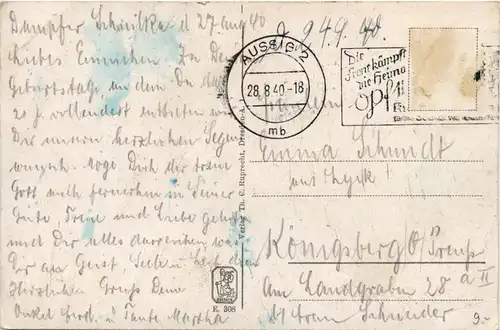 Dampfer d 27 Aug 40
Liebes Emmchen. Zu Dem
Geburtstage an dem Du das
20 J. vollendest entbieten wir
Dir unseren herzlichen Segens
wunsch. Möge Dich der treue
Gott auch fernerhin in Seiner
Güte, Treue und Liebe
und Dir alles darreichen was
Dir an Geist, Seele u
Herzlichen Gruss Deine
Onkel Ferd. u Tante Martha
9 4 9 40.
AUSSIG 2
28.8.40.-18
mb
Die
Front kämpft
die Heima
Opf
Emma Schmidt
aus Lyck!
Königsberg O/Preuß
Am Landgraben 28 a II
b/ Frau Schneider
9.-
Verlag Th. C. Ruprecht, Dresden-A. 1
E. 308